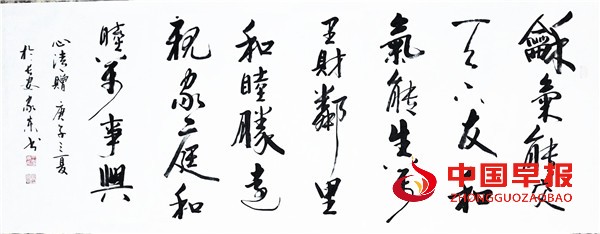 龢氣能交
天下友和
氣能生萬
里財鄰里
和睦勝遠
親家庭和
睦萬事興
贈 庚子之夏
於長安 書
中国早报
ZHONGGUOZAOBAO